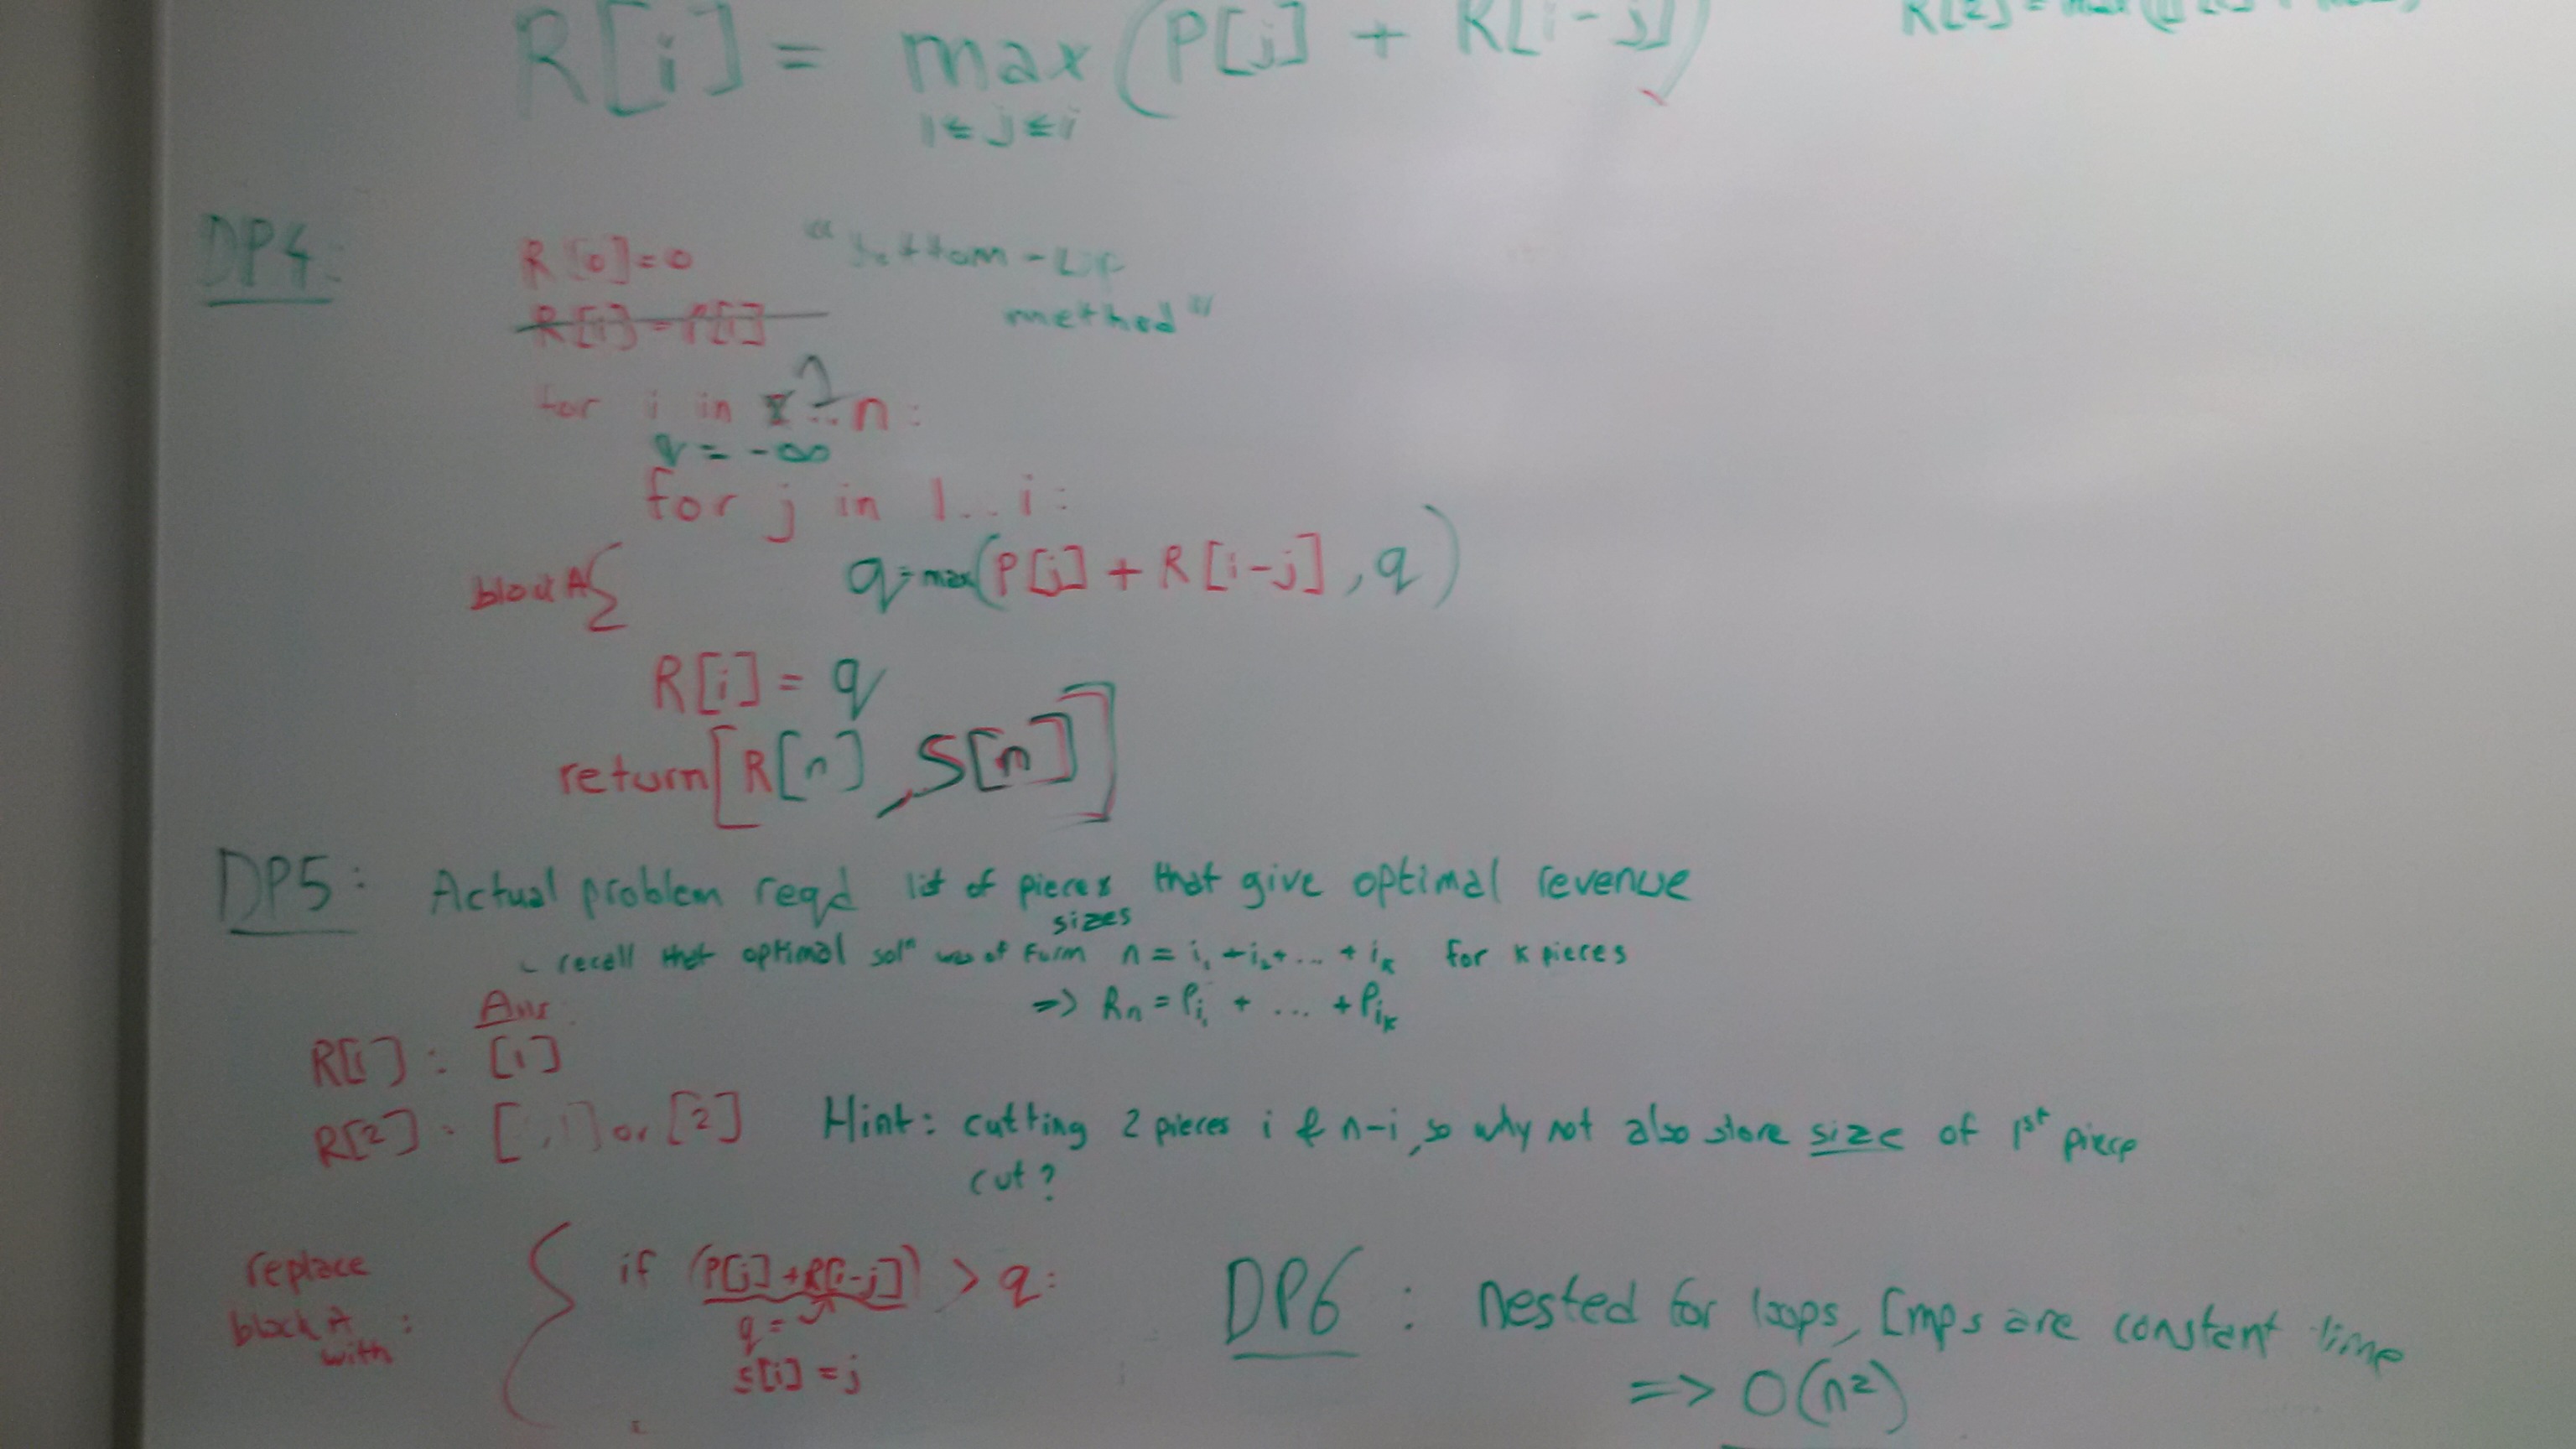 R[i] = max (P[j] + R[i-j])
1≤j≤i
R[2] = max(
DP4:
R[0]=0 "bottom-up
R[1] = P[1] method"
for i in 1...n:
q = -∞
for j in 1...i:
block A { q=max(P[j] + R[i-j], q)
R[i] = q
return[R[n], S[n]]
DP5: Actual problem reqd list of pieces that give optimal revenue
sizes
recall that optimal solⁿ was of form n = i₁ + i₂ + ... + iₖ for k pieces
=> Rn = Pi₁ + ... + Piₖ
Ans
R[1] : [1]
R[2] : [1,1] or [2] Hint: cutting 2 pieces i & n-i, so why not also store size of 1st piece
cut?
replace
block A :
with
if (P[j]+R[i-j]) > q:
q =
s[i] = j
DP6 : Nested for loops, Cmps are constant time
=> O(n²)